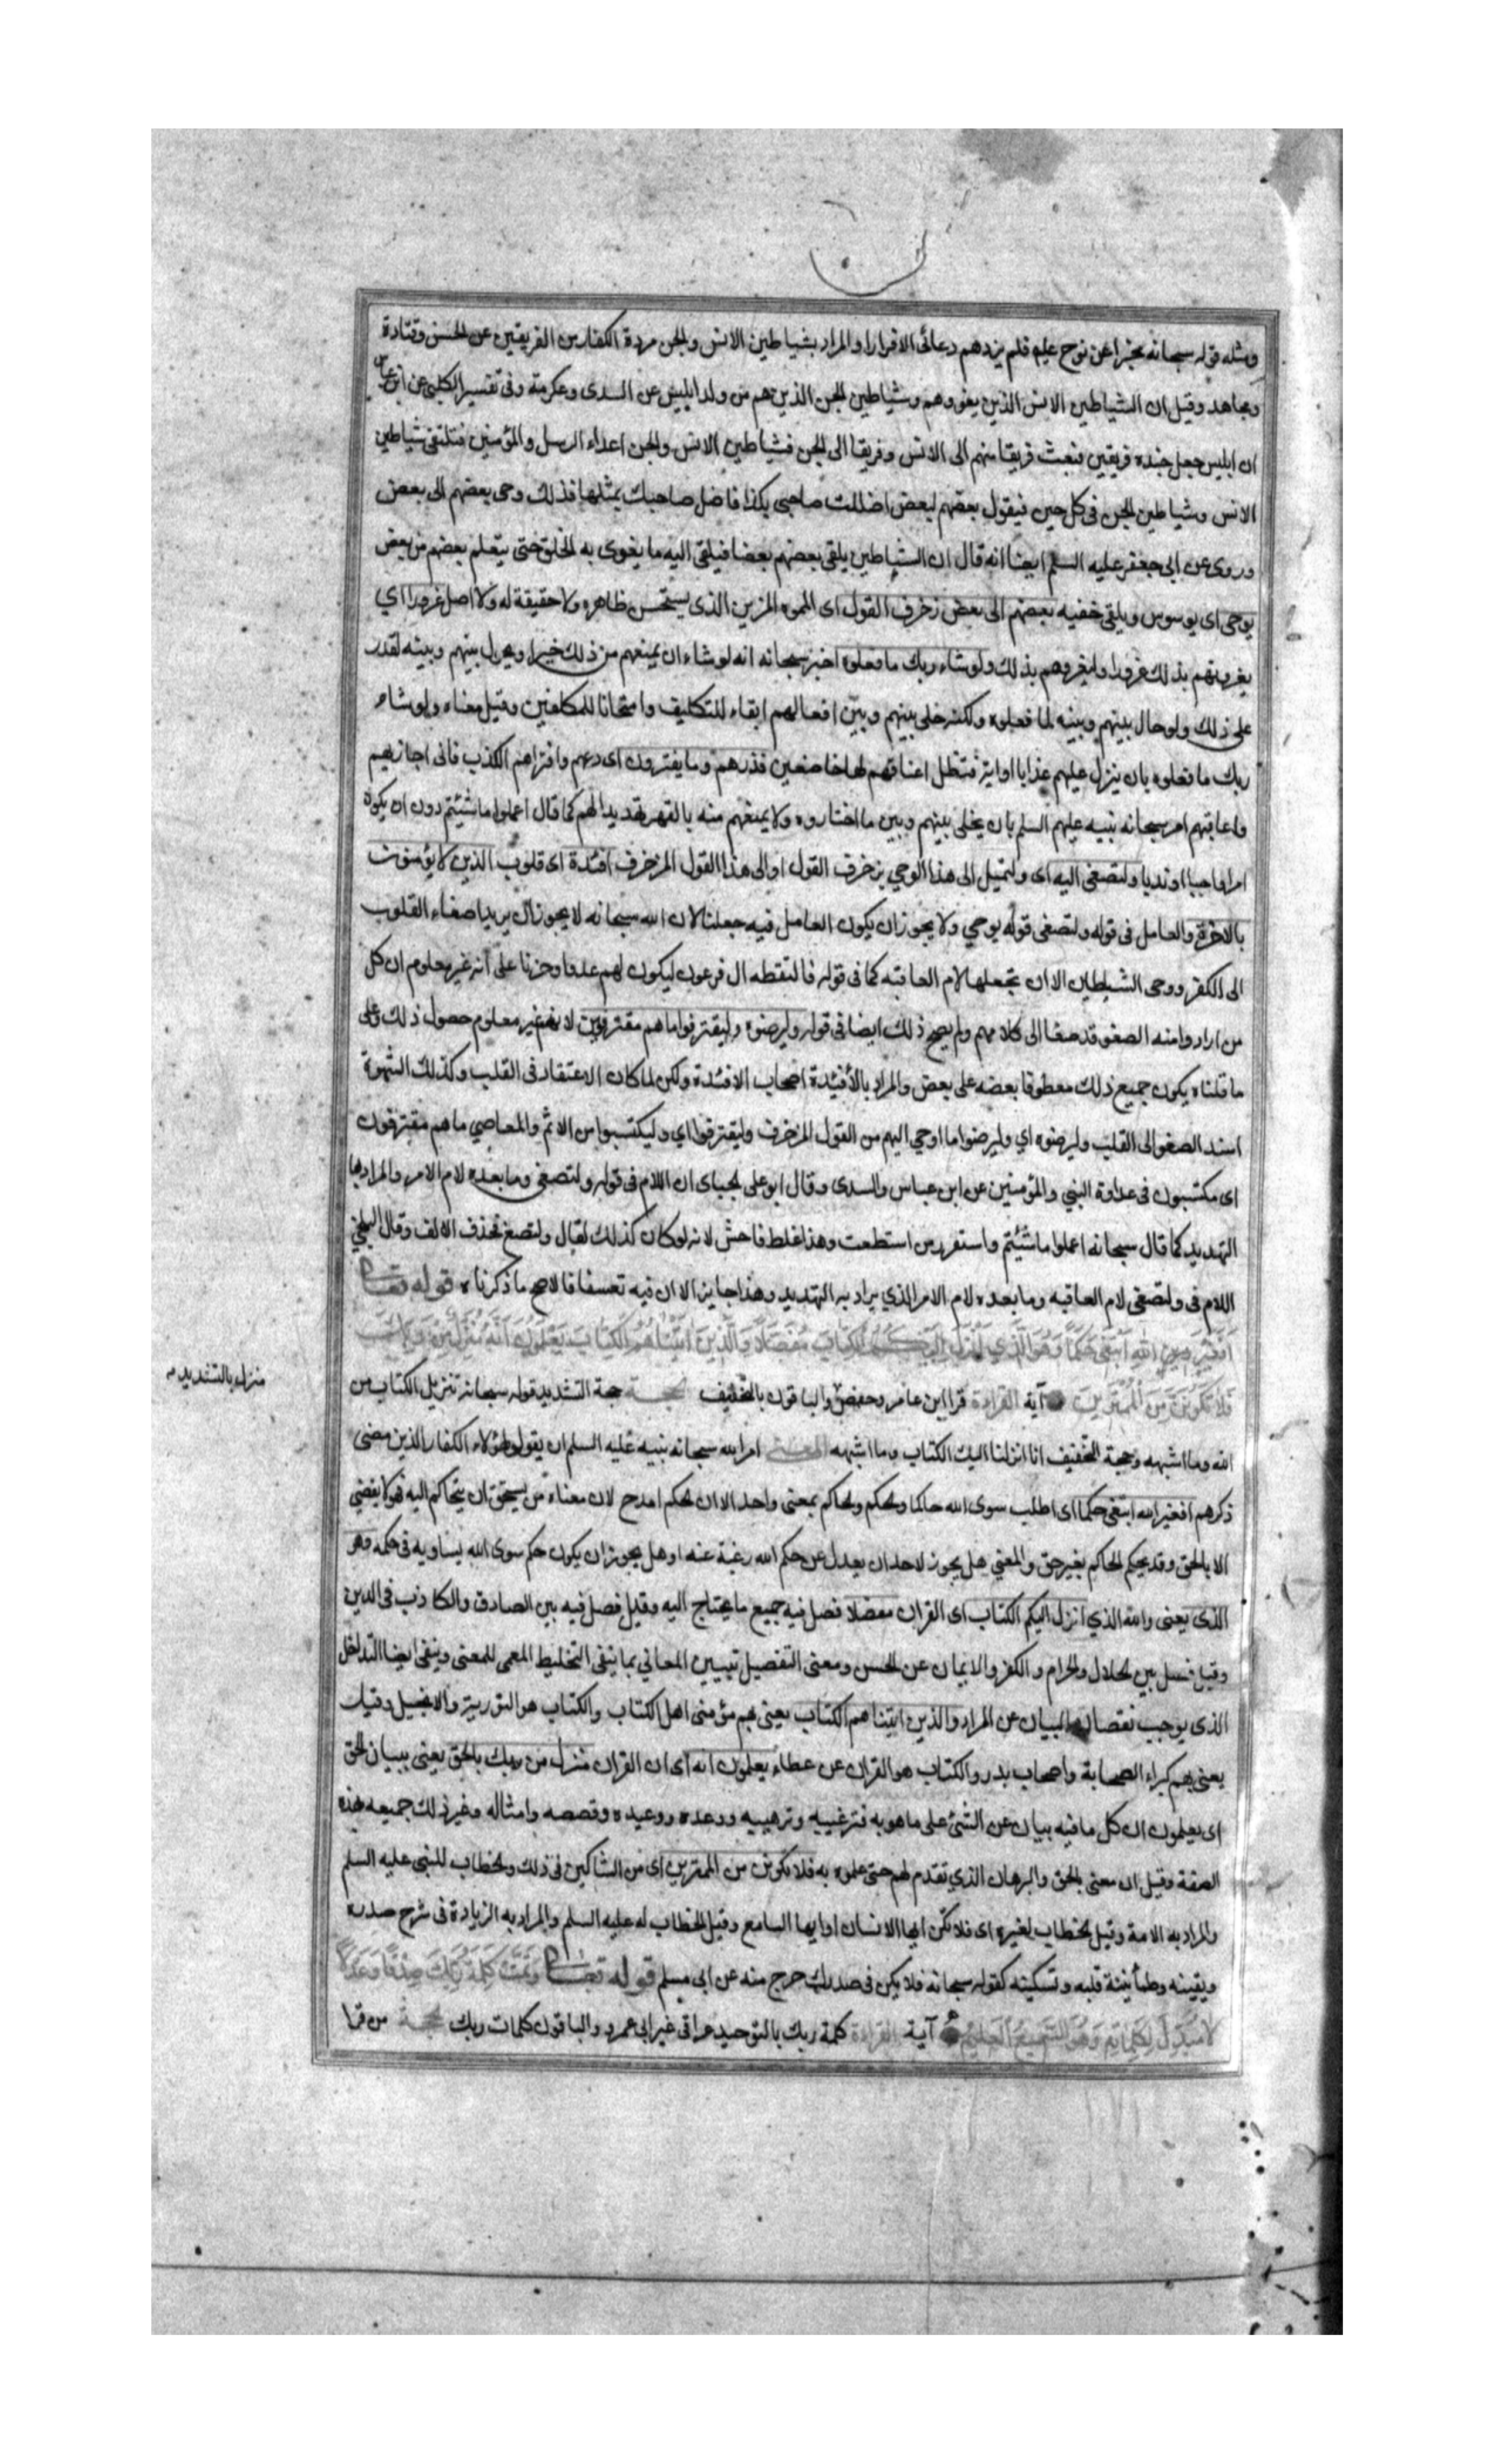 ومثله قوله سبحانه مخبرا عن نوح عليه فلم يزدهم دعائى الا فرارا والمراد بشياطين الانس والجن مردة الكفار من الفريقين عن الحسن وقتادة
ومجاهد وقيل ان الشياطين الانس الذين يغووهم وشياطين الجن الذين هم من ولد ابليس عن السدى وعكرمة وفى تفسير الكلبى عن ابن عباس
ان ابليس جعل جنده فريقين فبعث فريقا منهم الى الانس وفريقا الى الجن فشياطين الانس والجن اعداء الرسل والمؤمنين فتلتقى شياطين
الانس وشياطين الجن فى كل حين فيقول بعضهم لبعض اضللت صاحبى بكذا فاضل صاحبك بمثلها فذلك وحى بعضهم الى بعض
وروى عن ابى جعفر عليه السلم ايضا انه قال ان الشياطين يلقى بعضهم بعضا فيلقى اليه ما يغوى به الخلق حتى يتعلم بعضهم من بعض
يوحى اى يوسوس ويلقى خفيه بعضهم الى بعض زخرف القول اى المموه المزين الذى يستحسن ظاهره ولا حقيقة له ولا اصل غرورا اي
يغرونهم بذلك غرورا وليغروهم بذلك ولو شاء ربك ما فعلوه اخبر سبحانه انه لو شاء ان يمنعهم من ذلك خبرا ويحول بينهم وبينه لقدر
على ذلك ولو حال بينهم وبينه لما فعلوه ولكنه خلى بينهم وبين افعالهم ابقاء للتكليف وامتحانا للمكلفين وقيل معناه ولو شاء
ربك ما فعلوه بان ينزل عليهم عذابا او اية فتظل اعناقهم لها خاضعين فذرهم وما يفترون اى دعهم وافتراهم الكذب فانى اجازيهم
واعاقبهم امر سبحانه نبيه عليهم السلم بان يخلى بينهم وبين ما اختاروه ولا يمنعهم منه بالقهر تهديدا لهم كما قال اعملوا ما شئتم دون ان يكون
امرا واجبا او ندبا ولتصغى اليه اى ولتميل الى هذا الوحي بزخرف القول او الى هذا القول المزخرف افئدة اى قلوب الذين لا يؤمنون
بالاخرة والعامل فى قوله ولتصغى قوله يوحي ولا يجوز ان يكون العامل فيه جعلنا لان الله سبحانه لا يجوز ان يريد اصغاء القلوب
الى الكفر ووحى الشيطان الا ان تجعلها لام العاقبه كما فى قوله فالتقطه ال فرعون ليكون لهم عدوا وحزنا على انه غير معلوم ان كل
من ارادوا منه الصغو قد صغا الى كلامهم ولم يصح ذلك ايضا فى قوله وليرضوه وليقترفوا ما هم مقترفون لانهم غير معلوم حصول ذلك وعلى
ما قلناه يكون جميع ذلك معطوفا بعضه على بعض والمراد بالأفئدة اصحاب الافئدة ولكن لما كان الاعتقاد فى القلب وكذلك الشهوة
اسند الصغو الى القلب وليرضوه اي وليرضوا ما اوحي اليهم من القول المزخرف وليقترفوا اي وليكتسبوا من الاثم والمعاصي ما هم مقترفون
اى مكتسبون فى عداوة النبي والمؤمنين عن ابن عباس والسدى وقال ابو على الجباى ان اللام فى قوله ولتصغى وما بعده لام الامر والمراد بها
التهديد كما قال سبحانه اعملوا ما شئتم واستفزز من استطعت وهذا غلط فاحش لانه لو كان كذلك لقال ولتصغ فحذف الالف وقال البلخي
اللام فى ولتصغى لام العاقبه وما بعده لام الامر الذي يراد به التهديد وهذا جايز الا ان فيه تعسفا فالاصح ما ذكرناه قوله تعالى
افغير الله ابتغى حكما وهو الذي انزل اليكم الكتاب مفصلا والذين اتيناهم الكتاب يعلمون انه منزل من ربك بالحق
فلا تكونن من الممترين آية القراءة قرا ابن عامر وحفص والباقون بالتخفيف الحجة حجة التشديد قوله سبحانه تنزيل الكتاب من
منزل بالتشديد
الله وما اشبهه وحجة التخفيف انا انزلنا اليك الكتاب وما اشبهه المعنى امر الله سبحانه نبيه عليه السلم ان يقول لهؤلاء الكفار الذين مضى
ذكرهم افغير الله ابتغى حكما اى اطلب سوى الله حاكما والحكم والحاكم بمعنى واحد الا ان الحكم امدح لان معناه من يستحق ان يتحاكم اليه فهو لا يقضي
الا بالحق وقد يحكم الحاكم بغير حق والمعني هل يجوز لاحد ان يعدل عن حكم الله رغبة عنه او هل يجوز ان يكون حكم سوى الله يساويه فى حكمه وهو
الذى يعنى والله الذي انزل اليكم الكتاب اى القران مفصلا فصل فيه جميع ما يحتاج اليه وقيل فصل فيه بين الصادق والكاذب فى الدين
وقيل فصل بين الحلال والحرام والكفر والايمان عن الحسن ومعنى التفصيل تبيين المعاني بما ينفى التخليط المعمى للمعنى وينفى ايضا التداخل
الذى يوجب نقصان البيان عن المراد والذين اتيناهم الكتاب يعنى بهم مؤمنى اهل الكتاب والكتاب هو التورية والانجيل وقيل
يعنى بهم كبراء الصحابة واصحاب بدر والكتاب هو القران عن عطاء يعلمون انه اى ان القران منزل من ربك بالحق يعنى ببيان الحق
اى يعلمون ان كل ما فيه بيان عن الشئ على ما هو به فترغيبه وترهيبه ووعده ووعيده وقصصه وامثاله وغير ذلك جميعه بهذه
الصفة وقيل ان معنى بالحق والبرهان الذي تقدم لهم حتى علموه به فلا تكونن من الممترين اى من الشاكين فى ذلك والخطاب للنبي عليه السلم
والمراد به الامة وقيل الخطاب لغيره اى فلا تكن ايها الانسان او ايها السامع وقيل الخطاب له عليه السلم والمراد به الزيادة فى شرح صدره
ويقينه وطمأنينة قلبه وتسكينه كقوله سبحانه فلا يكن فى صدرك حرج منه عن ابى مسلم قوله تعالى وتمت كلمة ربك صدقا وعدلا
لا مبدل لكلماته وهو السميع العليم آية القراءة كلمة ربك بالتوحيد عراقى غير ابى عمرو والباقون كلمات ربك الحجة من قرا